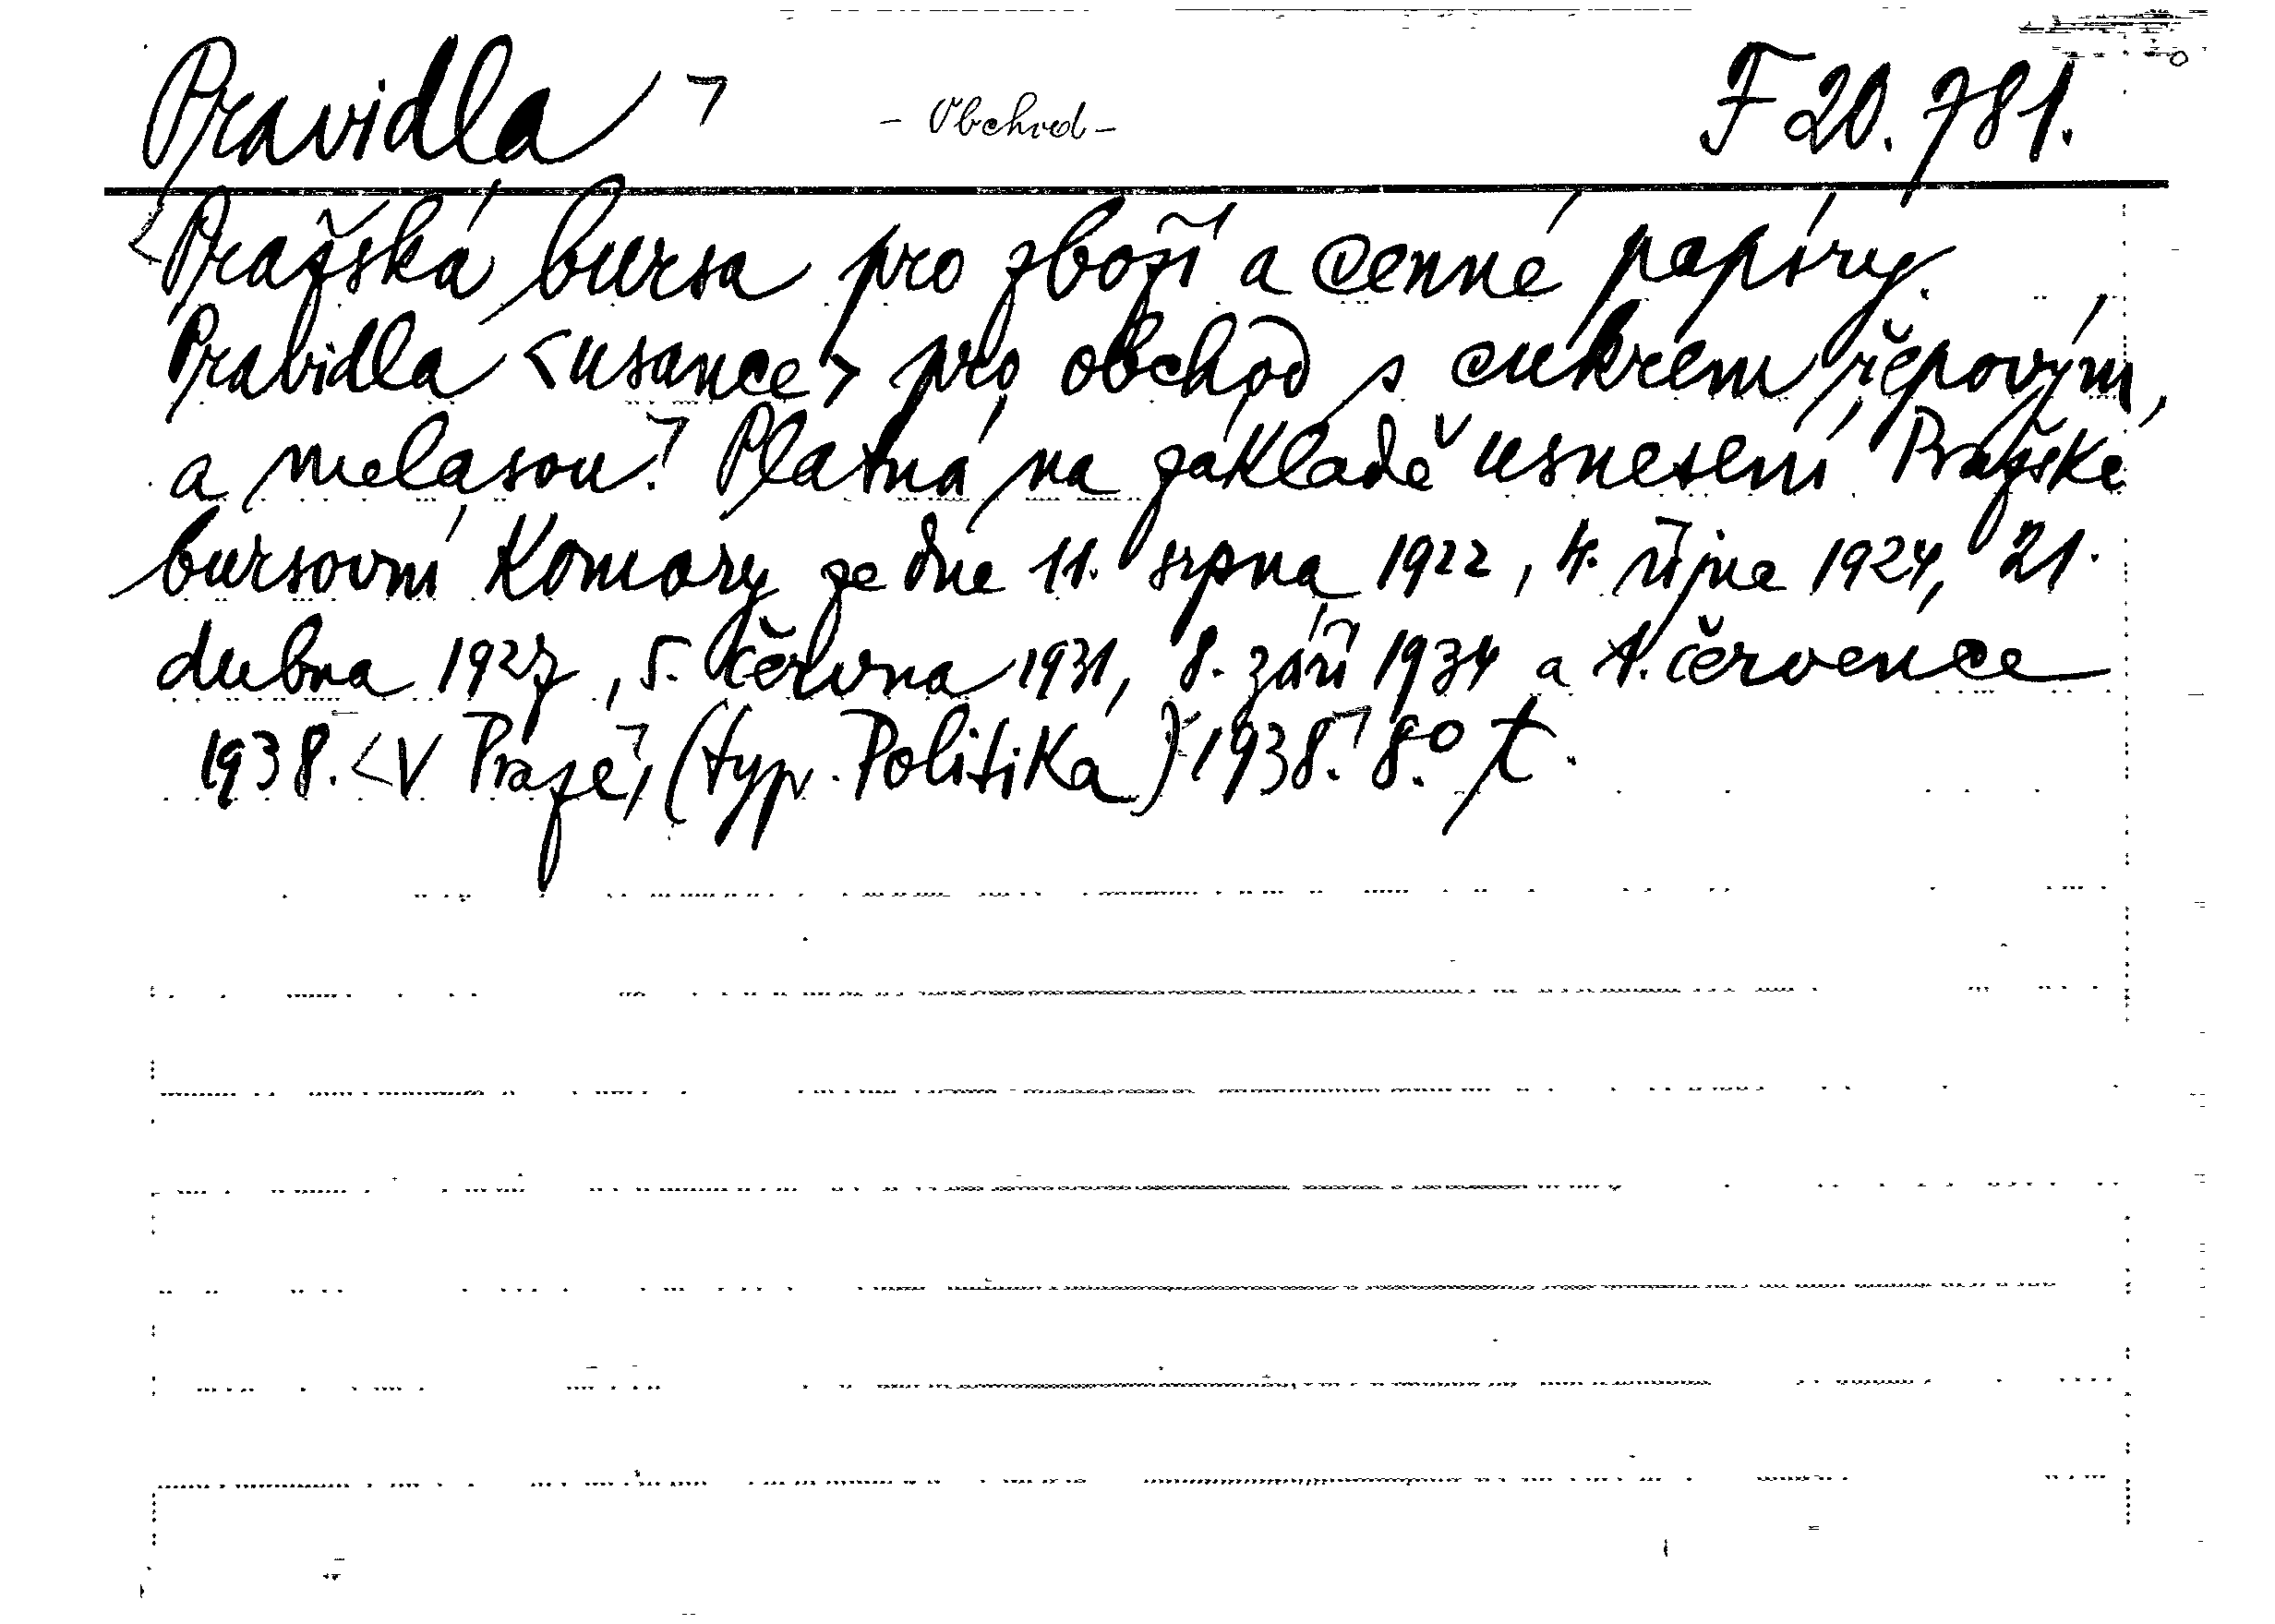 Pravidla ¬ - Obchod - F 20.781.
<Pražská bursa pro zboží a cenné papíry.
Pravidla <usance> pro obchod s cukrem řepovým
a melasou.¬ Platná na základě usnesení Pražské
bursovní komory ze dne 11. srpna 1922, 4. října 1924, 21.
dubna 1927, 5. června 1931, 8. září 1934 a 1. července
1938. <V Praze¬, (typ. Politika) 1938.¬ 8.° t.